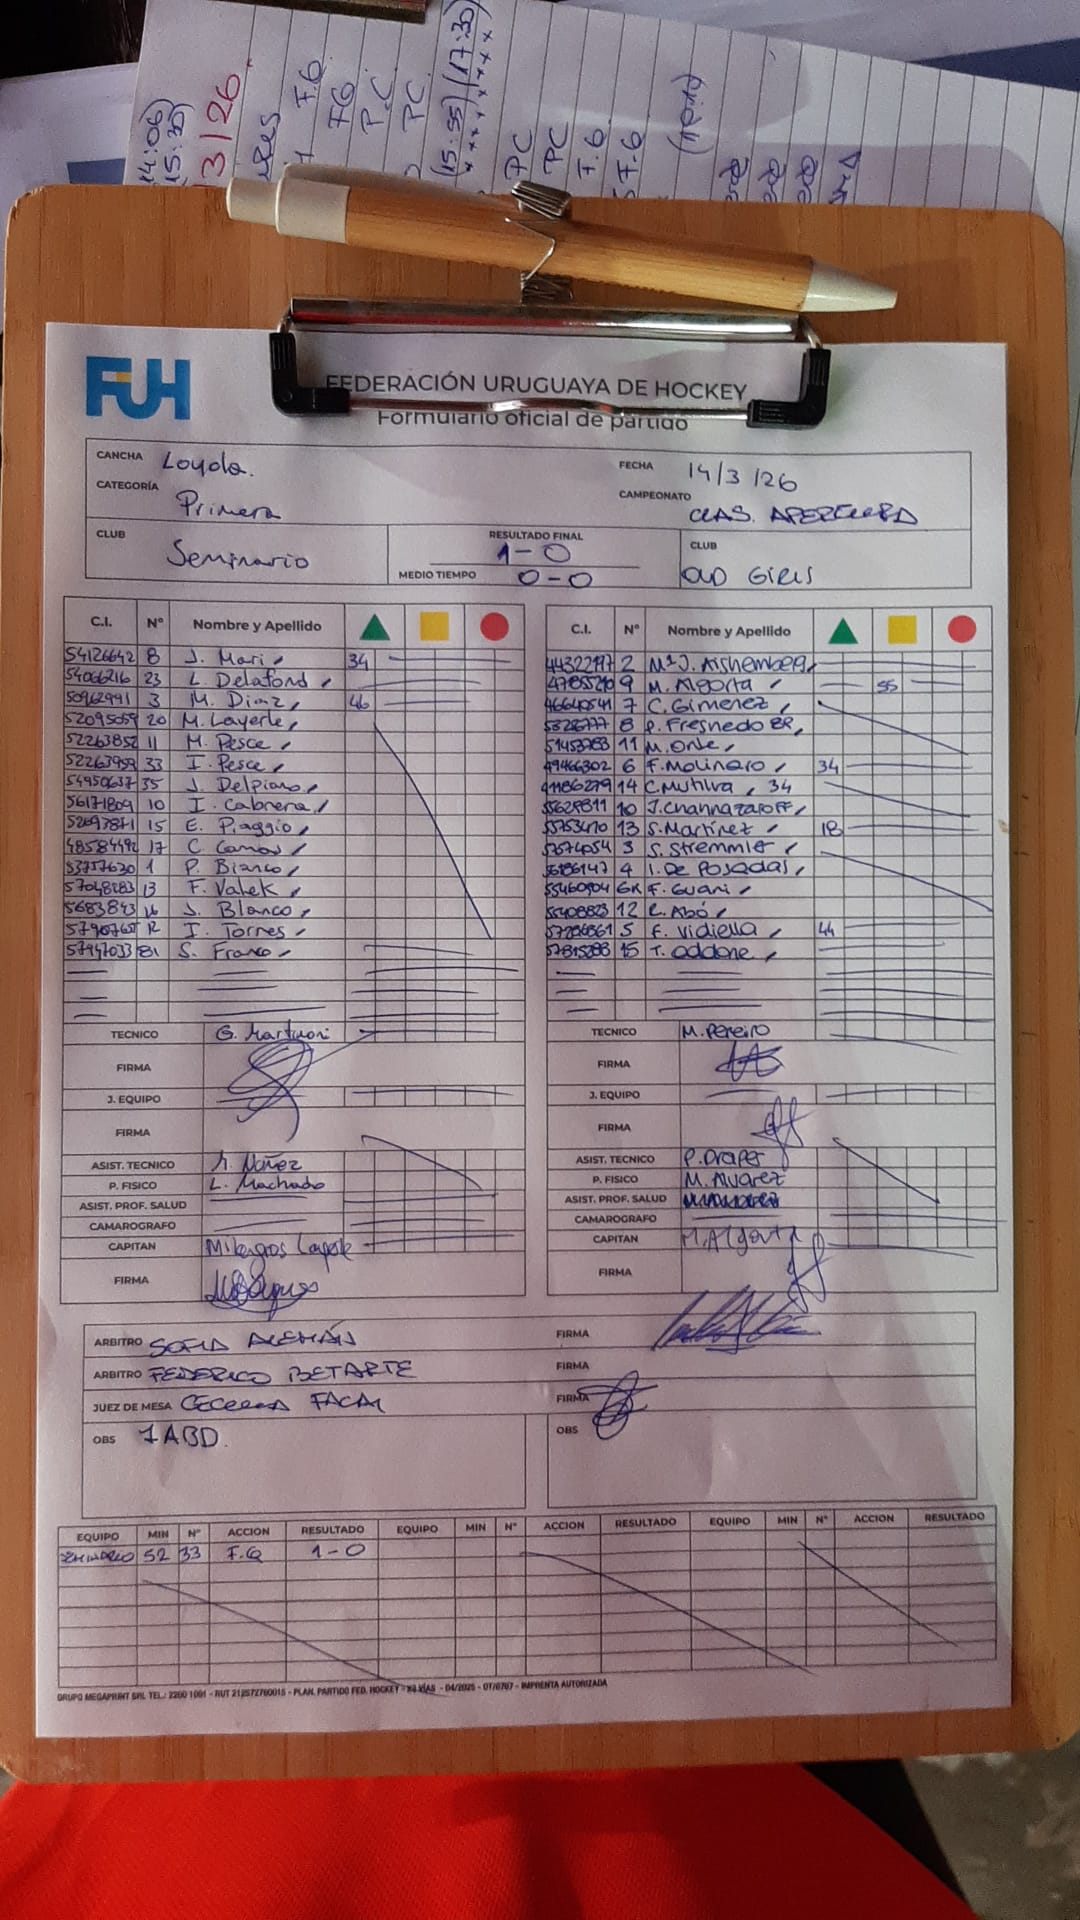 14:06)
15:30)
3/26.
F.G.
FG
P.C.
PC.
(15:55) (17:30)
PC
PC
F.G
F.G
FUH
FEDERACIÓN URUGUAYA DE HOCKEY
Formulario oficial de partido
CANCHA Loyola. FECHA 14/3/26
CATEGORÍA Primera CAMPEONATO CLAS. APERTURA
CLUB Seminario RESULTADO FINAL 1-0 CLUB OLD GIRLS
MEDIO TIEMPO 0-0
C.I. Nº Nombre y Apellido C.I. Nº Nombre y Apellido
54126642 8 J. Mari 34 44322197 2 Mª J. Aishemberg
54066216 23 L. Delafond 47855210 9 M. Algorta 55
50962991 3 M. Diaz 46 46640541 7 C. Gimenez
52095059 20 M. Layerle 8 P. Fresnedo BR
52263852 11 M. Pesce 51453783 11 M. Orde
52263959 33 I. Pesce 49466302 6 F. Molinaro 34
54950637 35 J. Delpiano 14 C. Mutilva 34
56171809 10 I. Cabrera 55629811 10 J. Channazaroff
52093871 15 E. Piaggio 55753470 13 S. Martinez 18
48584492 17 C. Camos 52674054 3 S. Stremmler
53757630 1 P. Bianco 56186147 4 I. De Posadas
57048283 13 F. Valek 55460904 GK F. Guani
5683843 16 J. Blanco 55408823 12 R. Abó
5790765 12 I. Torres 57286861 5 F. Vidiella 44
57947033 81 S. Franco 57815288 15 T. Oddone
TECNICO G. Martinoni TECNICO M. Pereiro
FIRMA FIRMA
J. EQUIPO J. EQUIPO
FIRMA FIRMA
ASIST. TECNICO A. Nuñez ASIST. TECNICO P. Draper
P. FISICO L. Machado P. FISICO M. Alvarez
ASIST. PROF. SALUD ASIST. PROF. SALUD
CAMAROGRAFO CAMAROGRAFO
CAPITAN Milagros Layerle CAPITAN M. Algorta
FIRMA FIRMA
ARBITRO SOFIA ALEMÁN FIRMA
ARBITRO FEDERICO BETARTE FIRMA
JUEZ DE MESA CECILIA FACAL FIRMA
OBS 1 ABD. OBS
EQUIPO MIN Nº ACCION RESULTADO EQUIPO MIN Nº ACCION RESULTADO EQUIPO MIN Nº ACCION RESULTADO
SEMINARIO 52 33 F.G 1-0
GRUPO MEGAPRINT SRL TEL.: 2200 1061 - RUT 212572760015 - PLAN. PARTIDO FED. HOCKEY - X3 VÍAS - 04/2025 - 07/6767 - IMPRENTA AUTORIZADA